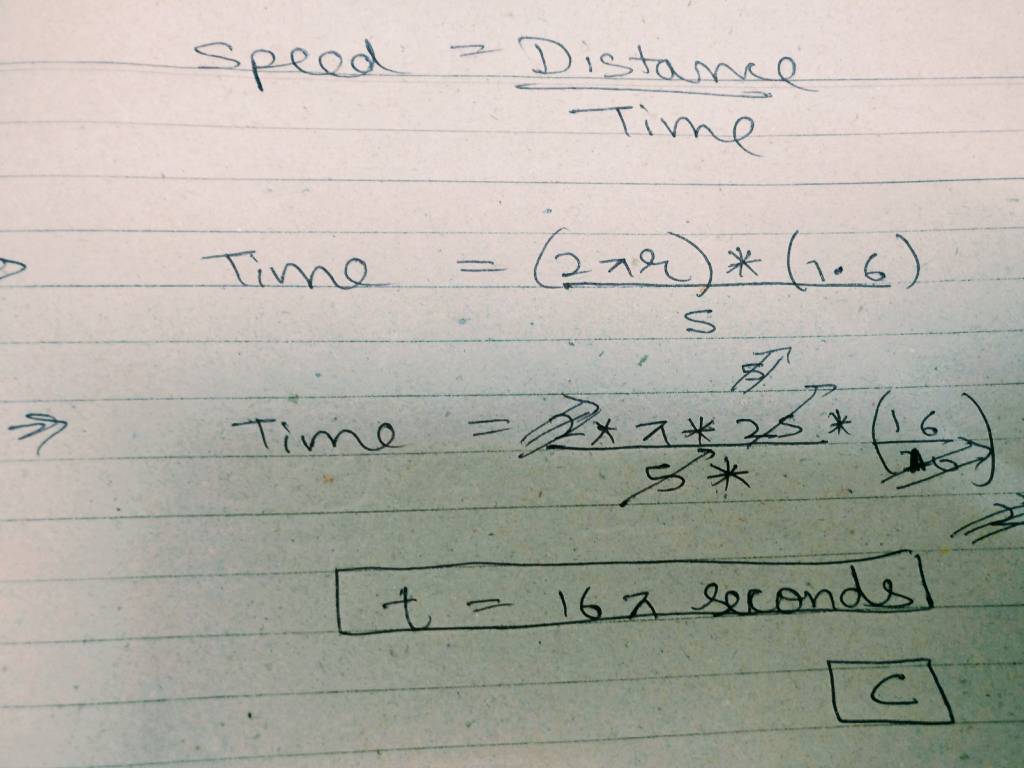 Speed = Distance
Time
⇒ Time = (2πr) * (1.6)
5
5
⇒ Time = 2 * π * 25 * (16
5 * 10)
2
t = 16π seconds
C